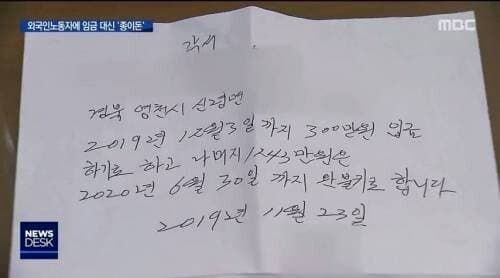 외국인노동자에 임금 대신 '종이돈'
MBC
각서
경북 영천시
2019년 12월3일 까지 300만원 입금
하기로 하고 나머지 1243만원은
2020년 6월 30일 까지 완불키로 합니다
2019년 11월 23일
NEWS
DESK